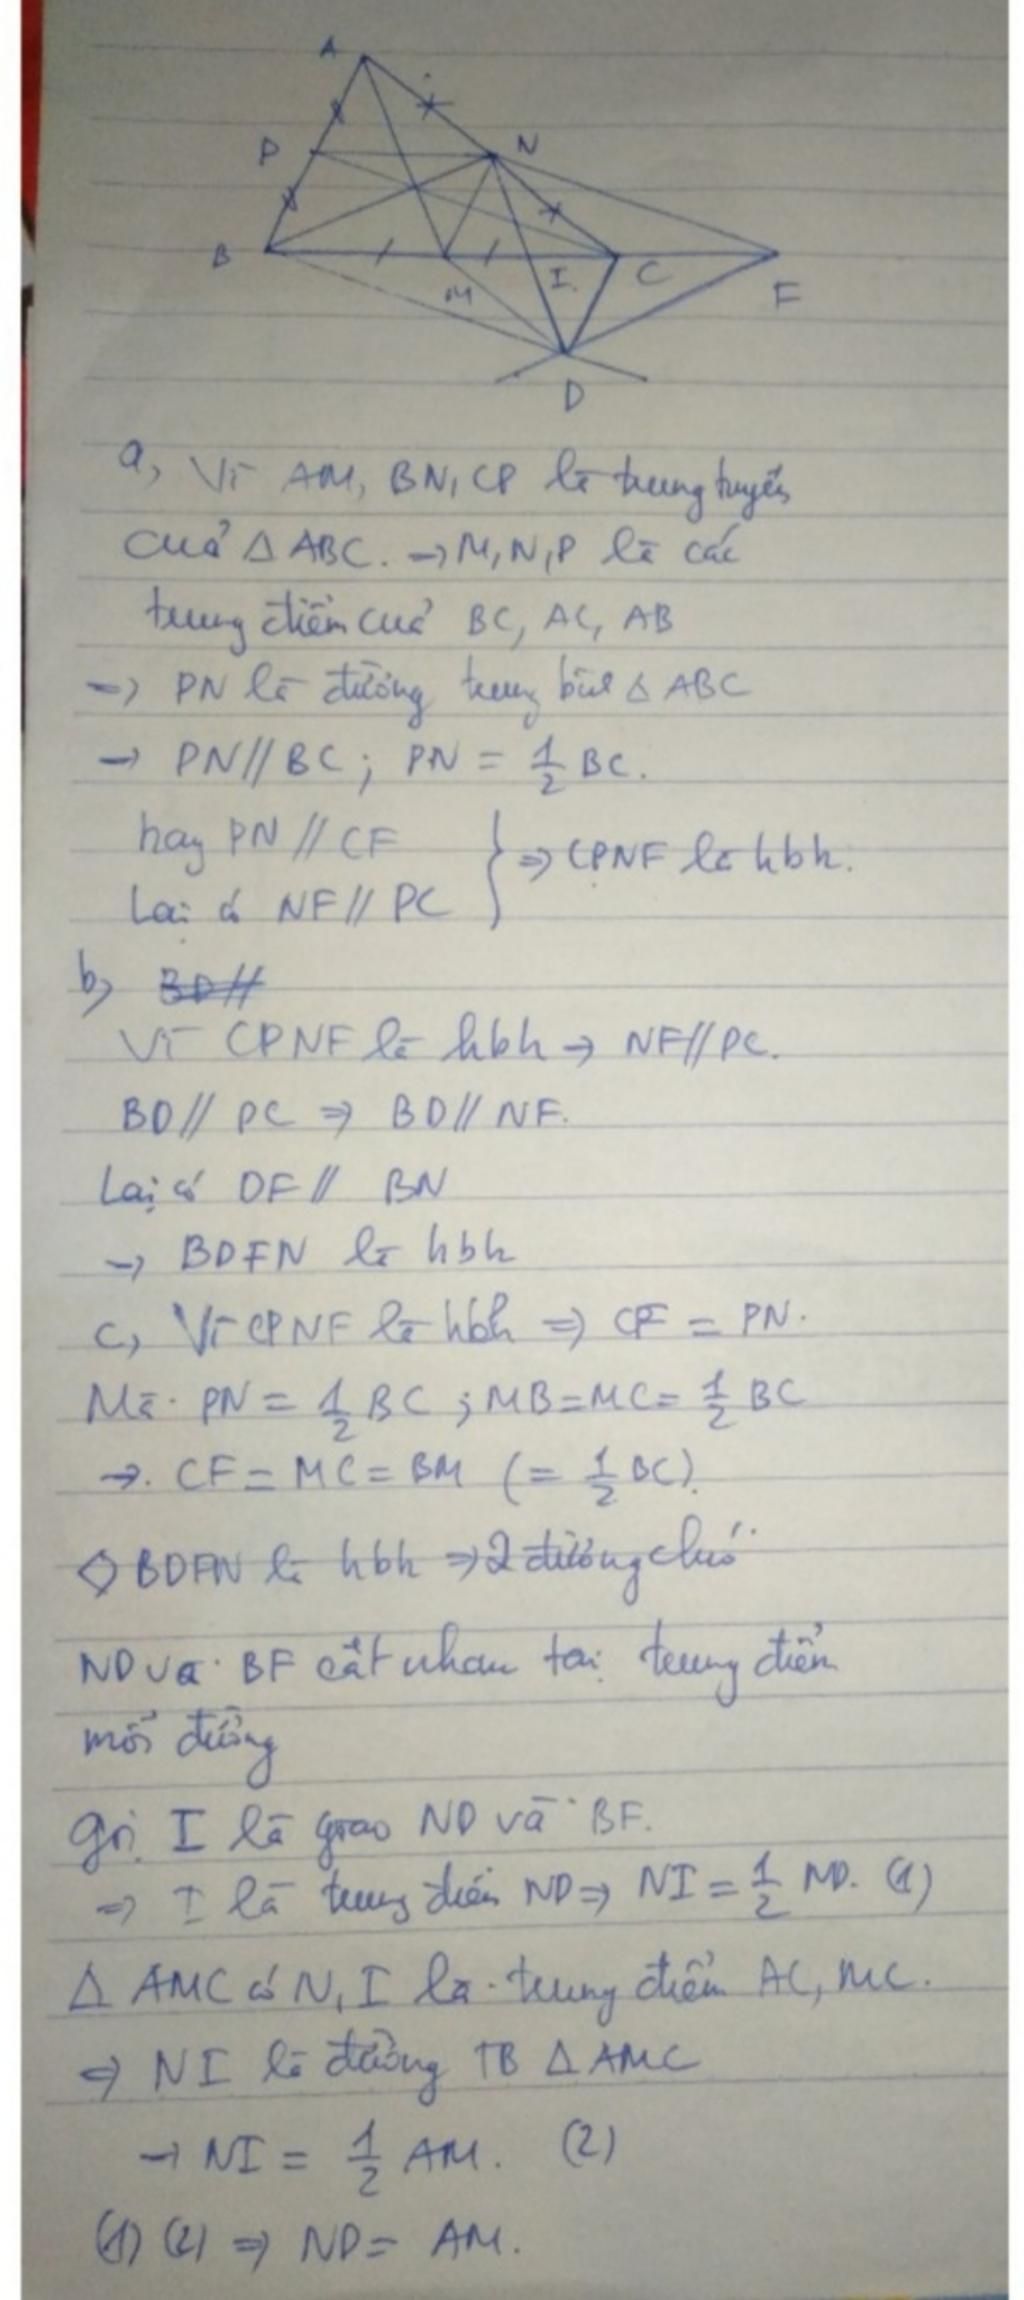 A
P
N
B
M
I
C
F
D
a, Vì AM, BN, CP là trung tuyến
của Δ ABC. → M, N, P là các
trung điểm của BC, AC, AB
→ PN là đường trung bình Δ ABC
→ PN // BC ; PN = 1/2 BC.
hay PN // CF
Lại có NF // PC } ⇒ CPNF là hbh.
b, BD //
Vì CPNF là hbh → NF // PC.
BD // PC ⇒ BD // NF.
Lại có DF // BN
→ BDFN là hbh
c, Vì CPNF là hbh ⇒ CF = PN.
Mà PN = 1/2 BC ; MB = MC = 1/2 BC
→ CF = MC = BM (= 1/2 BC).
◇ BDFN là hbh ⇒ 2 đường chéo
ND và BF cắt nhau tại trung điểm
mỗi đường
Gọi I là giao ND và BF.
⇒ I là trung điểm ND ⇒ NI = 1/2 ND. (1)
Δ AMC có N, I là trung điểm AC, MC.
⇒ NI là đường TB Δ AMC
→ NI = 1/2 AM. (2)
(1) (2) ⇒ ND = AM.